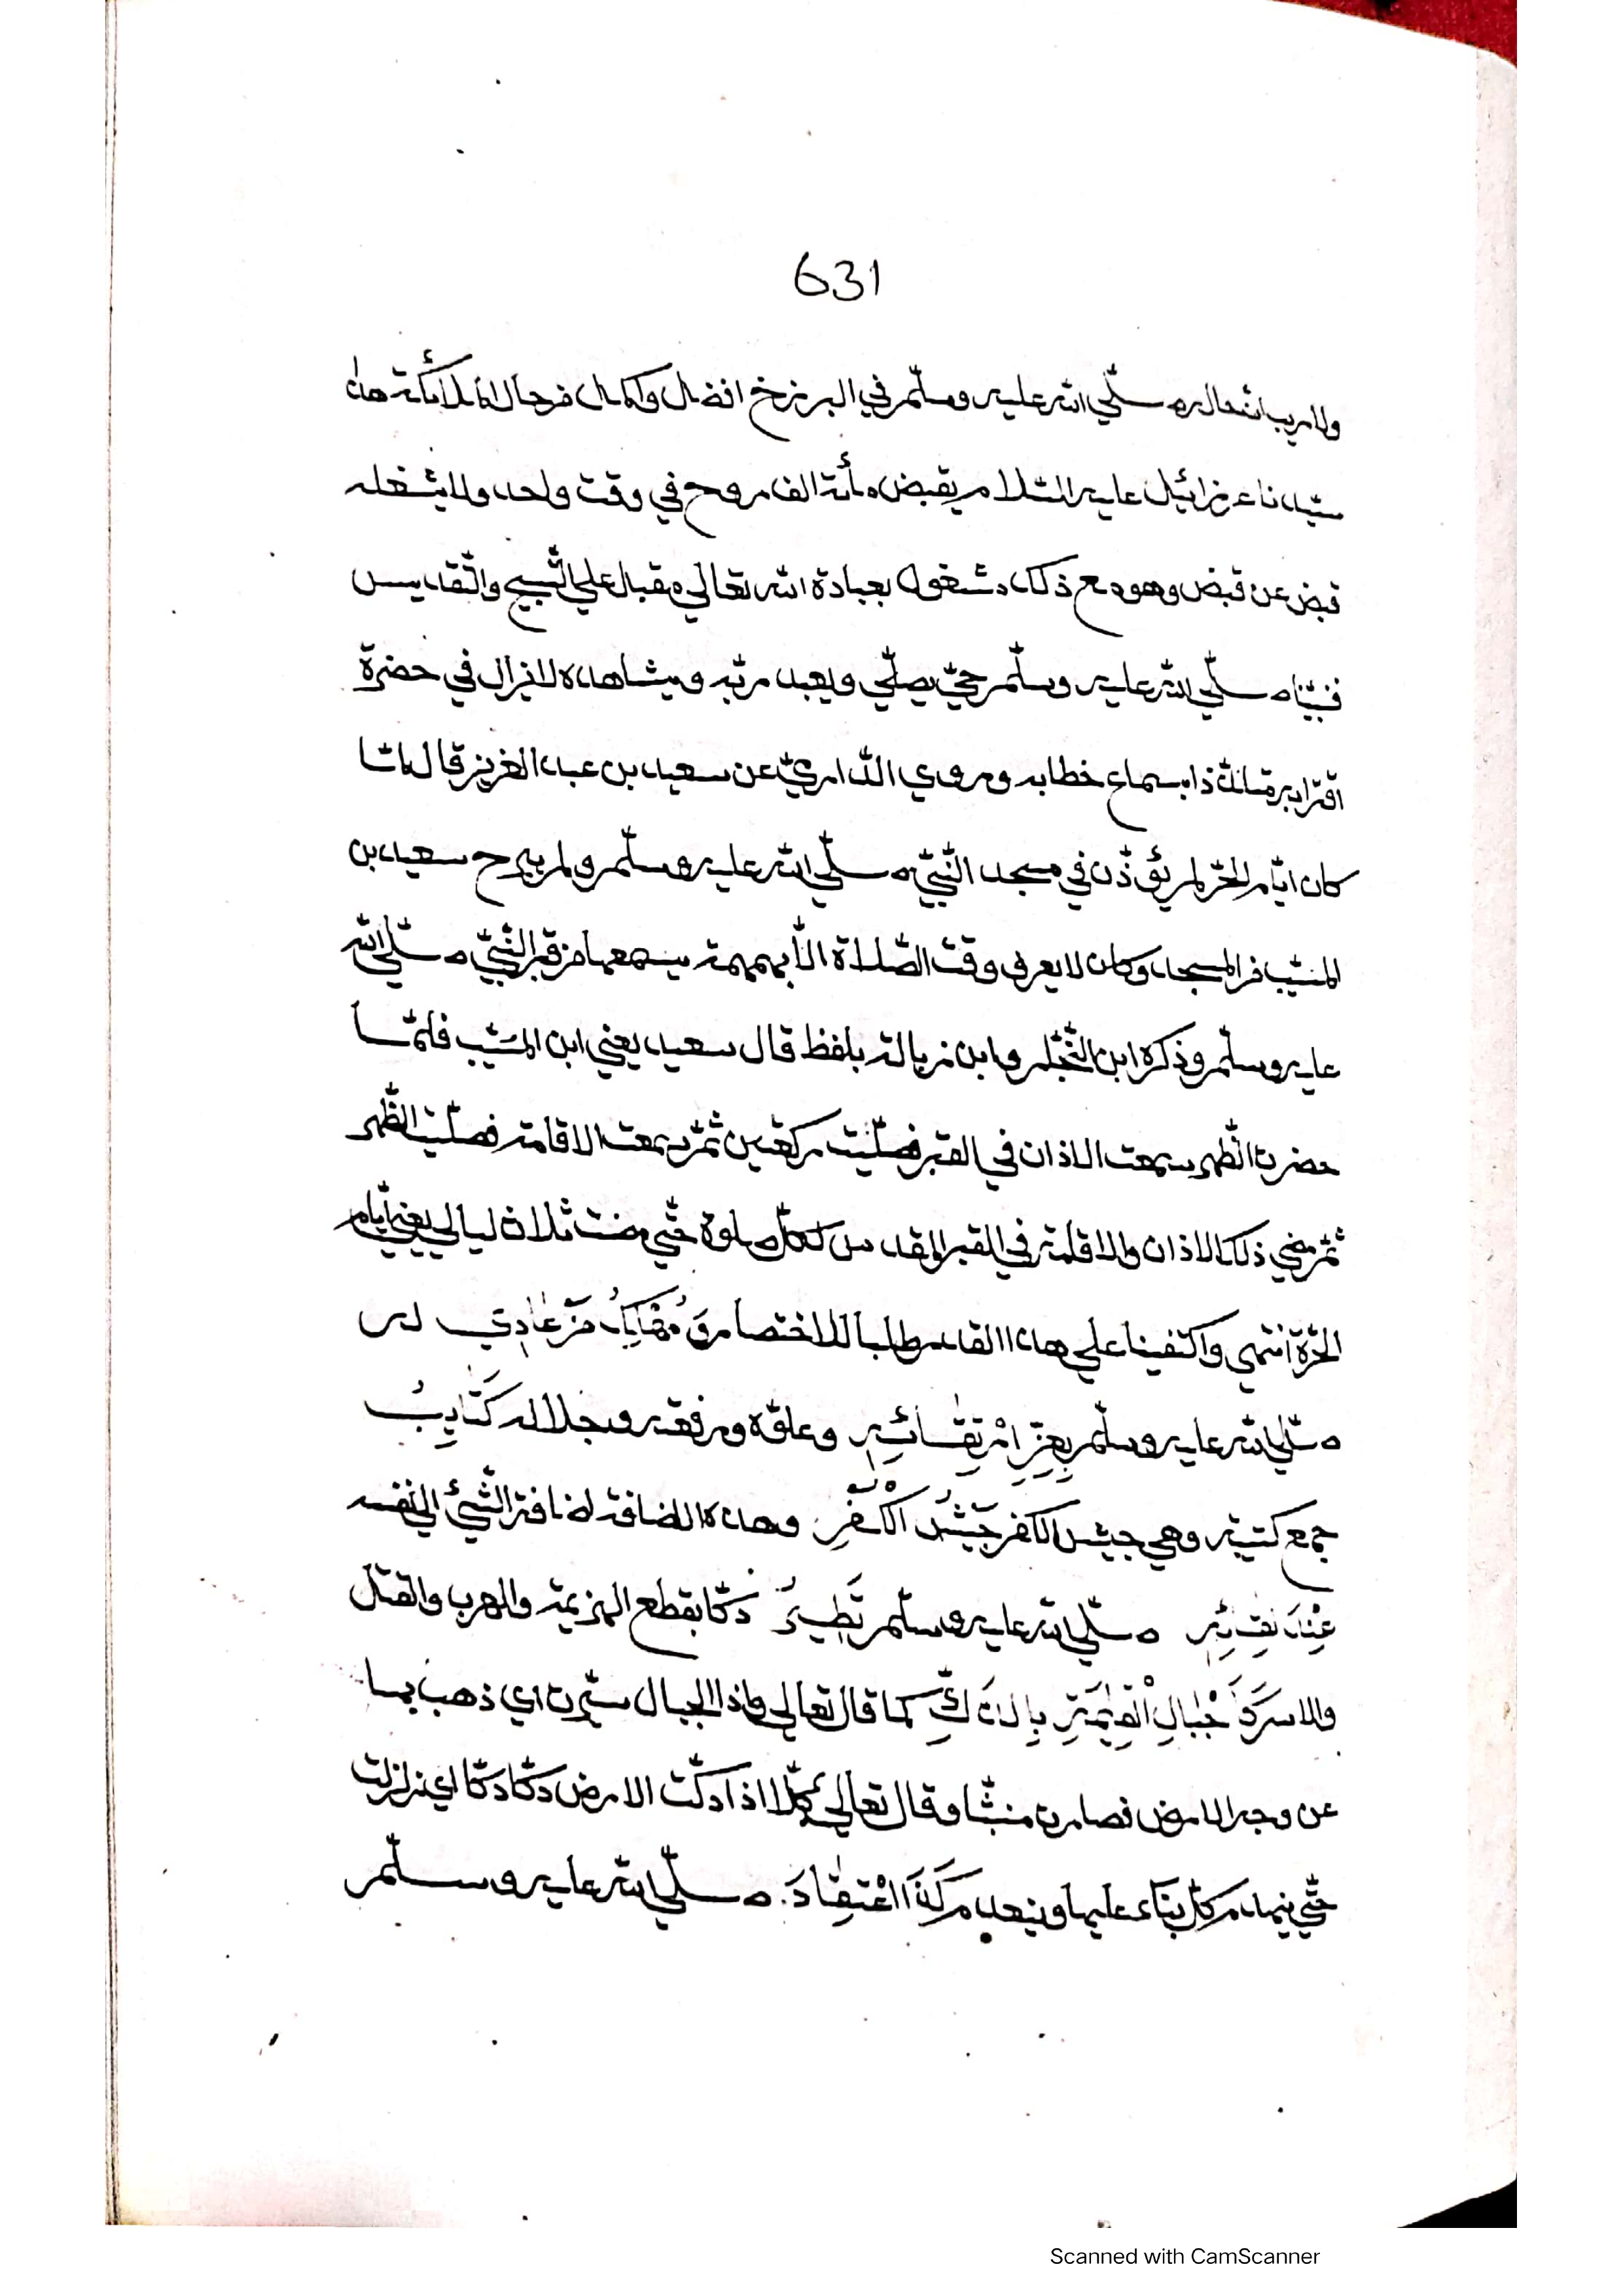 631
ولا ريب ان حاله صلّي الله عليه وسلّم في البرزخ افضل واكمل من حال الملائكة هذا
سيّدنا عزرائيل عليه السّلام يقبض مأئة الف روح في وقت واحد ولا يشغله
قبض عن قبض وهو مع ذلك مشغول بعبادة الله تعالي مقبل علي التّسبيح والتّقديس
فنبيّنا صلّي الله عليه وسلّم حيّ يصلّي ويعبد ربّه ويشاهده لا يزال في حضرة
اقترابه متلذّذا بسماع خطابه وروي الدّارميّ عن سعيد بن عبد العزيز قال لمّا
كان ايّام الحرّة لم يؤذّن في مسجد النّبيّ صلّي الله عليه وسلّم ولم يبرح سعيد بن
المسيّب من المسجد وكان لا يعرف وقت الصّلاة الّا بهمهمة يسمعها من قبر النّبيّ صلّي الله
عليه وسلّم وذكره ابن النّجّار وابن زبالة بلفظ قال سعيد يعني ابن المسيّب فلمّا
حضرت الظّهر سمعت الاذان في القبر فصلّيت ركعتين ثمّ سمعت الاقامة فصلّيت الظّهر
ثمّ مضي ذلك الاذان والاقامة في القبر المقدس لكلّ صلوة حتّي مضت ثلاث ليالي يعني ايّام
الحرّة انتهي واكتفينا علي هذا القدر طلبا للاختصار وَ مَنْ عَادِي
صلّي الله عليه وسلّم بِعِزِّ ارْتِقَائِهِ وعلوّه ورفعته وجلاله كَتَائِبُ
جمع كتيبة وهي جيش الكفر جَيْشُ الْكُفْرِ وهذه الاضافة اضافة الشّيئ الي نفسه
عِنْدَ لِقَائِهِ صلّي الله عليه وسلّم تَطِيرُ دكّا بقطع الهزيمة والهرب والقتل
والاسر كَجِبَالِ الْقِيٰمَةِ بِالدَّكِّ كما قال تعالي واذا الجبال سيّرت اي ذهب بها
عن وجه الارض فصارت منبثّا وقال تعالي كلّا اذا دكّت الارض دكّا دكّا اي زلزلت
حتّي ينهدم كلّ بناء عليها وينعدم كَذَا اعْتِقَادَ صلّي الله عليه وسلّم
Scanned with CamScanner